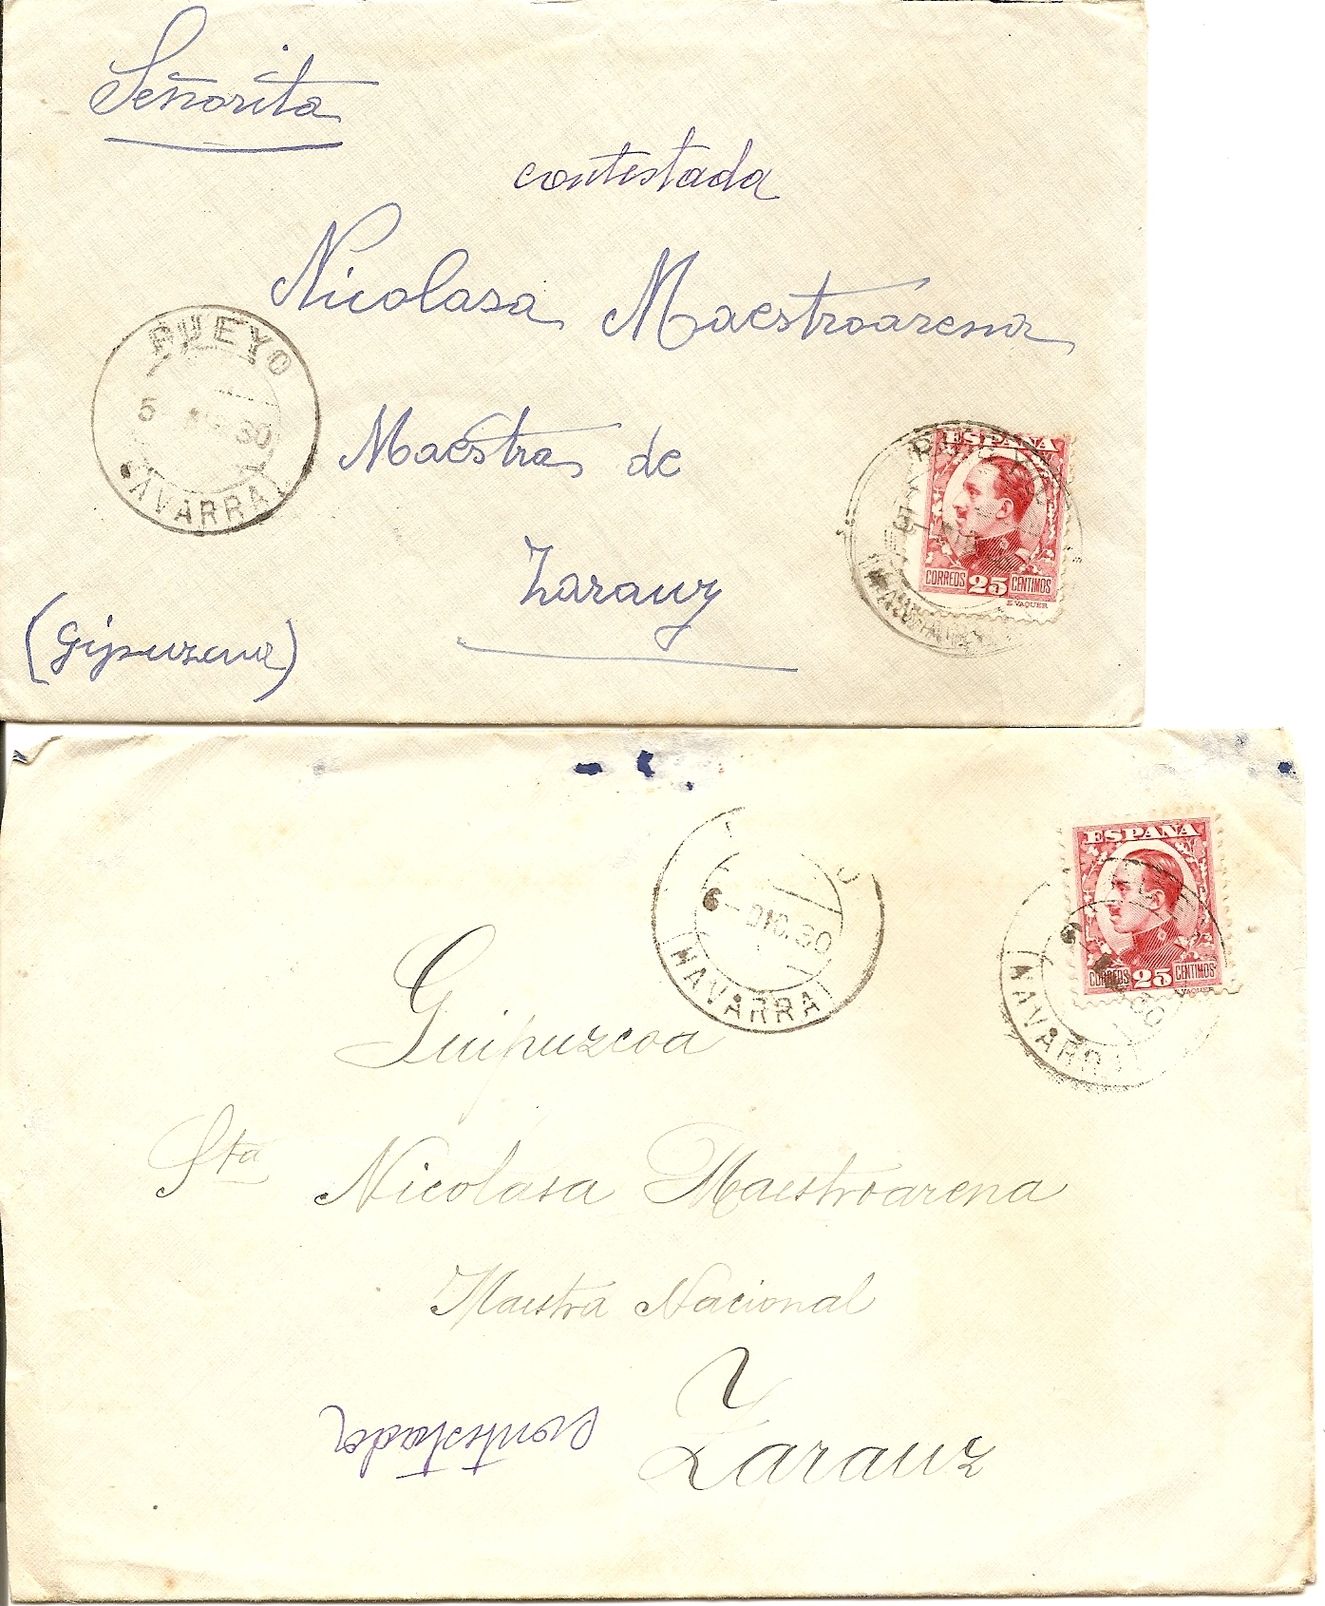 Señorita
contestada
Nicolasa Maestroarena
PUEYO
5 30
NAVARRA
Maestra de
Zarauz
(Gipuzcua)
ESPAÑA
CORREOS 25 CENTIMOS
E. VAQUER
6 - DIC. 30
(NAVARRA)
ESPAÑA
CORREOS 25 CENTIMOS
E. VAQUER
(NAVARRA)
Guipuzcoa
Sta Nicolasa Maestroarena
Maestra Nacional
Zarauz
contestada